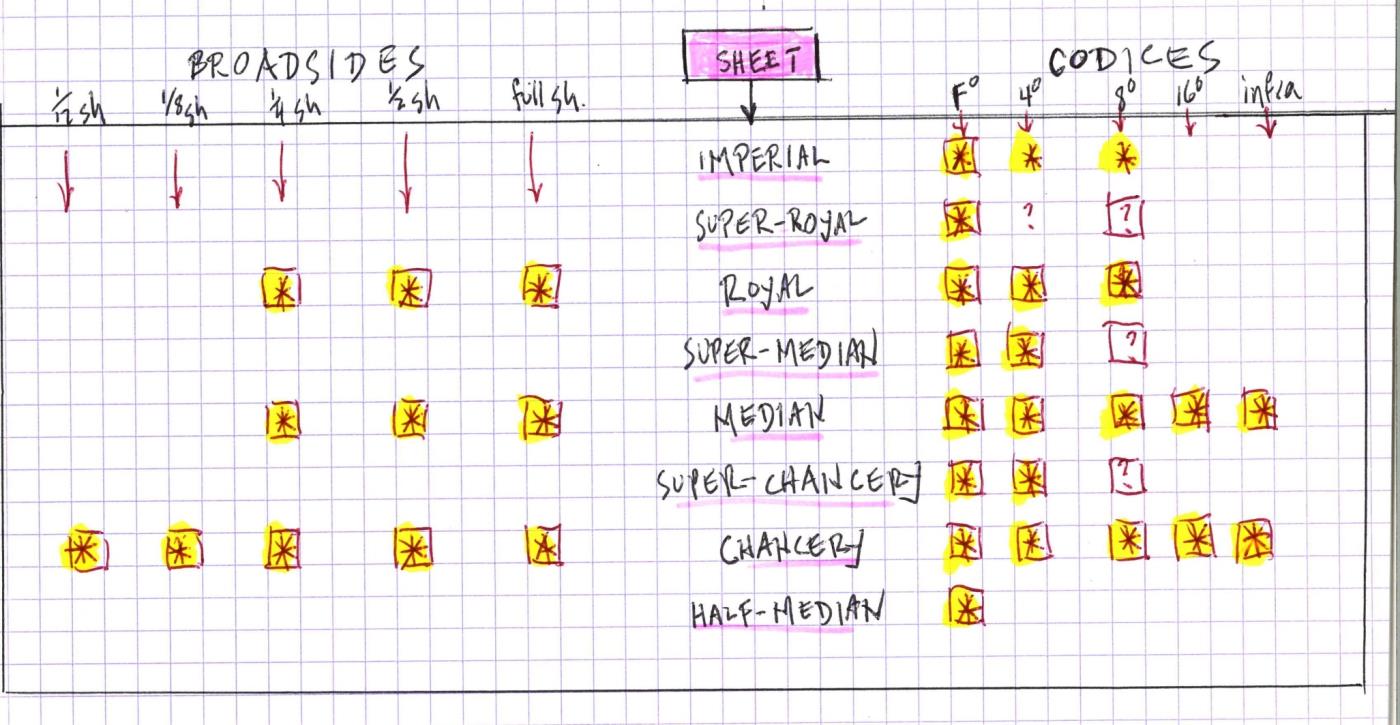 BROADSIDES SHEET CODICES
1/12 sh 1/8 sh 1/4 sh 1/2 sh full sh. F° 4° 8° 16° infra
IMPERIAL * * *
SUPER-ROYAL * ? ?
* * * ROYAL * * *
SUPER-MEDIAN * * ?
* * * MEDIAN * * * * *
SUPER-CHANCERY * * ?
* * * * * CHANCERY * * * * *
HALF-MEDIAN *